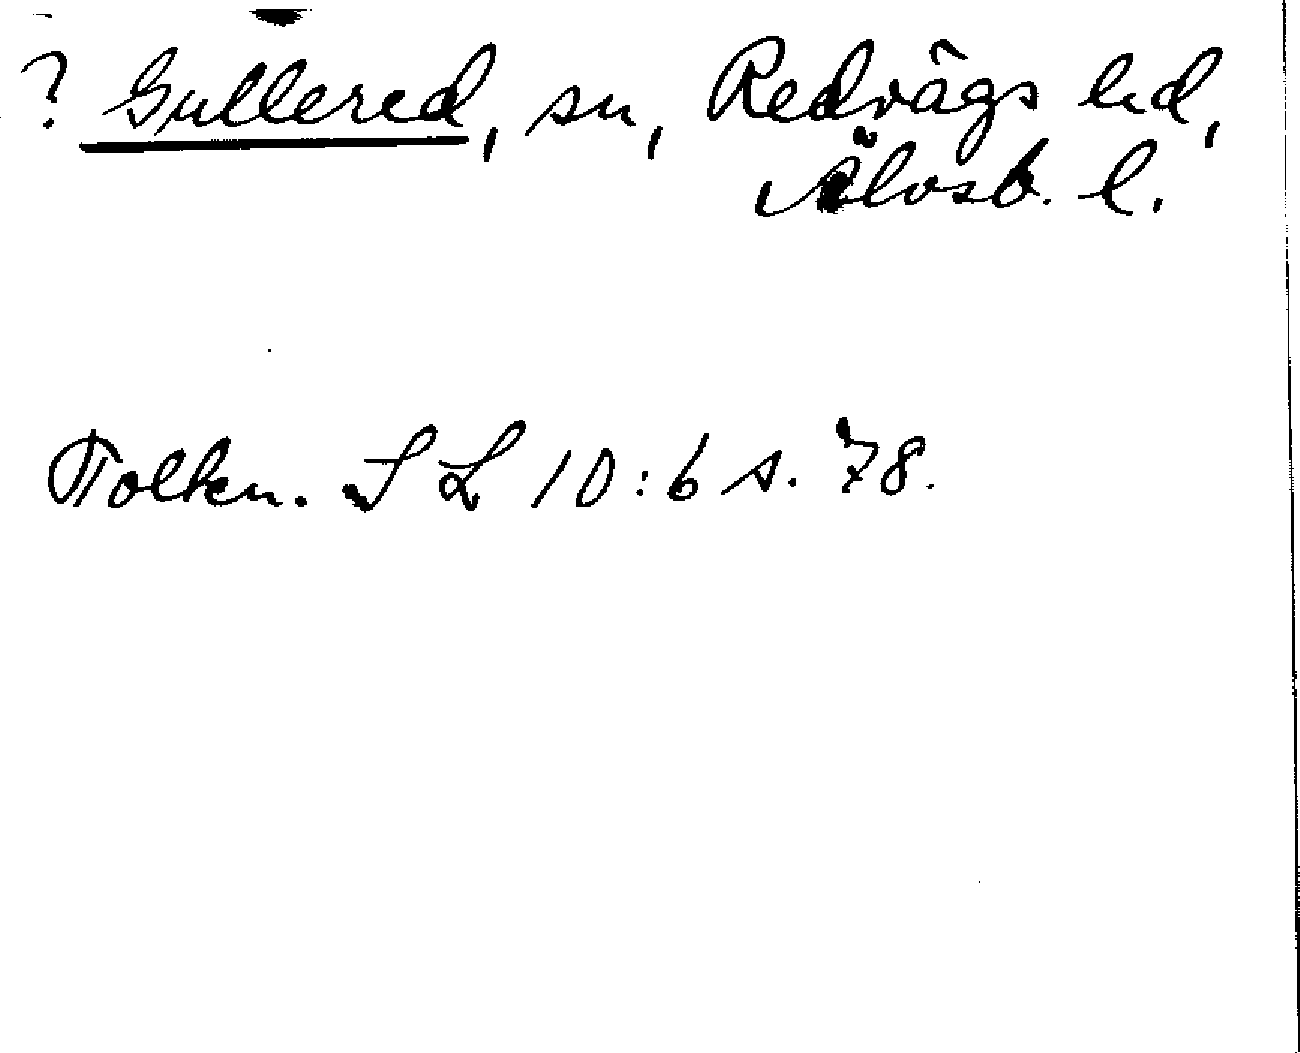 ? Gullered, sn, Redvägs hd,
Älvsb. l.
Tolkn. SL 10:6 s. 78.